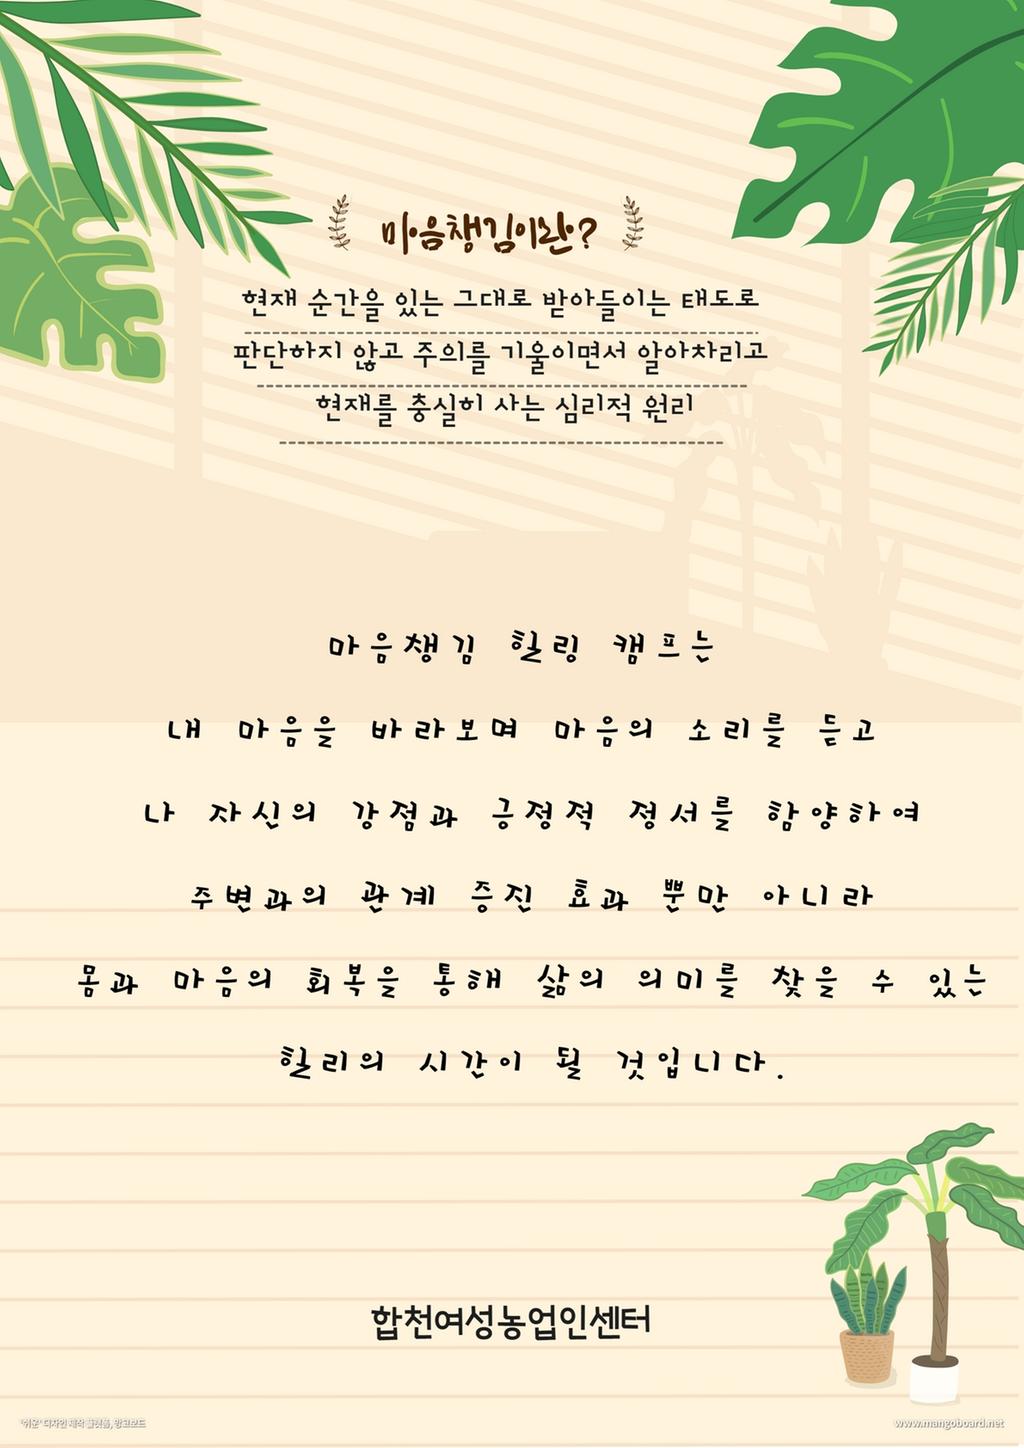 마음챙김이란?
현재 순간을 있는 그대로 받아들이는 태도로
판단하지 않고 주의를 기울이면서 알아차리고
현재를 충실히 사는 심리적 원리
마음챙김 힐링 캠프는
내 마음을 바라보며 마음의 소리를 듣고
나 자신의 강점과 긍정적 정서를 함양하여
주변과의 관계 증진 효과 뿐만 아니라
몸과 마음의 회복을 통해 삶의 의미를 찾을 수 있는
힐리의 시간이 될 것입니다.
합천여성농업인센터
'쉬운' 디자인 제작 플랫폼, 망고보드
www.mangoboard.net